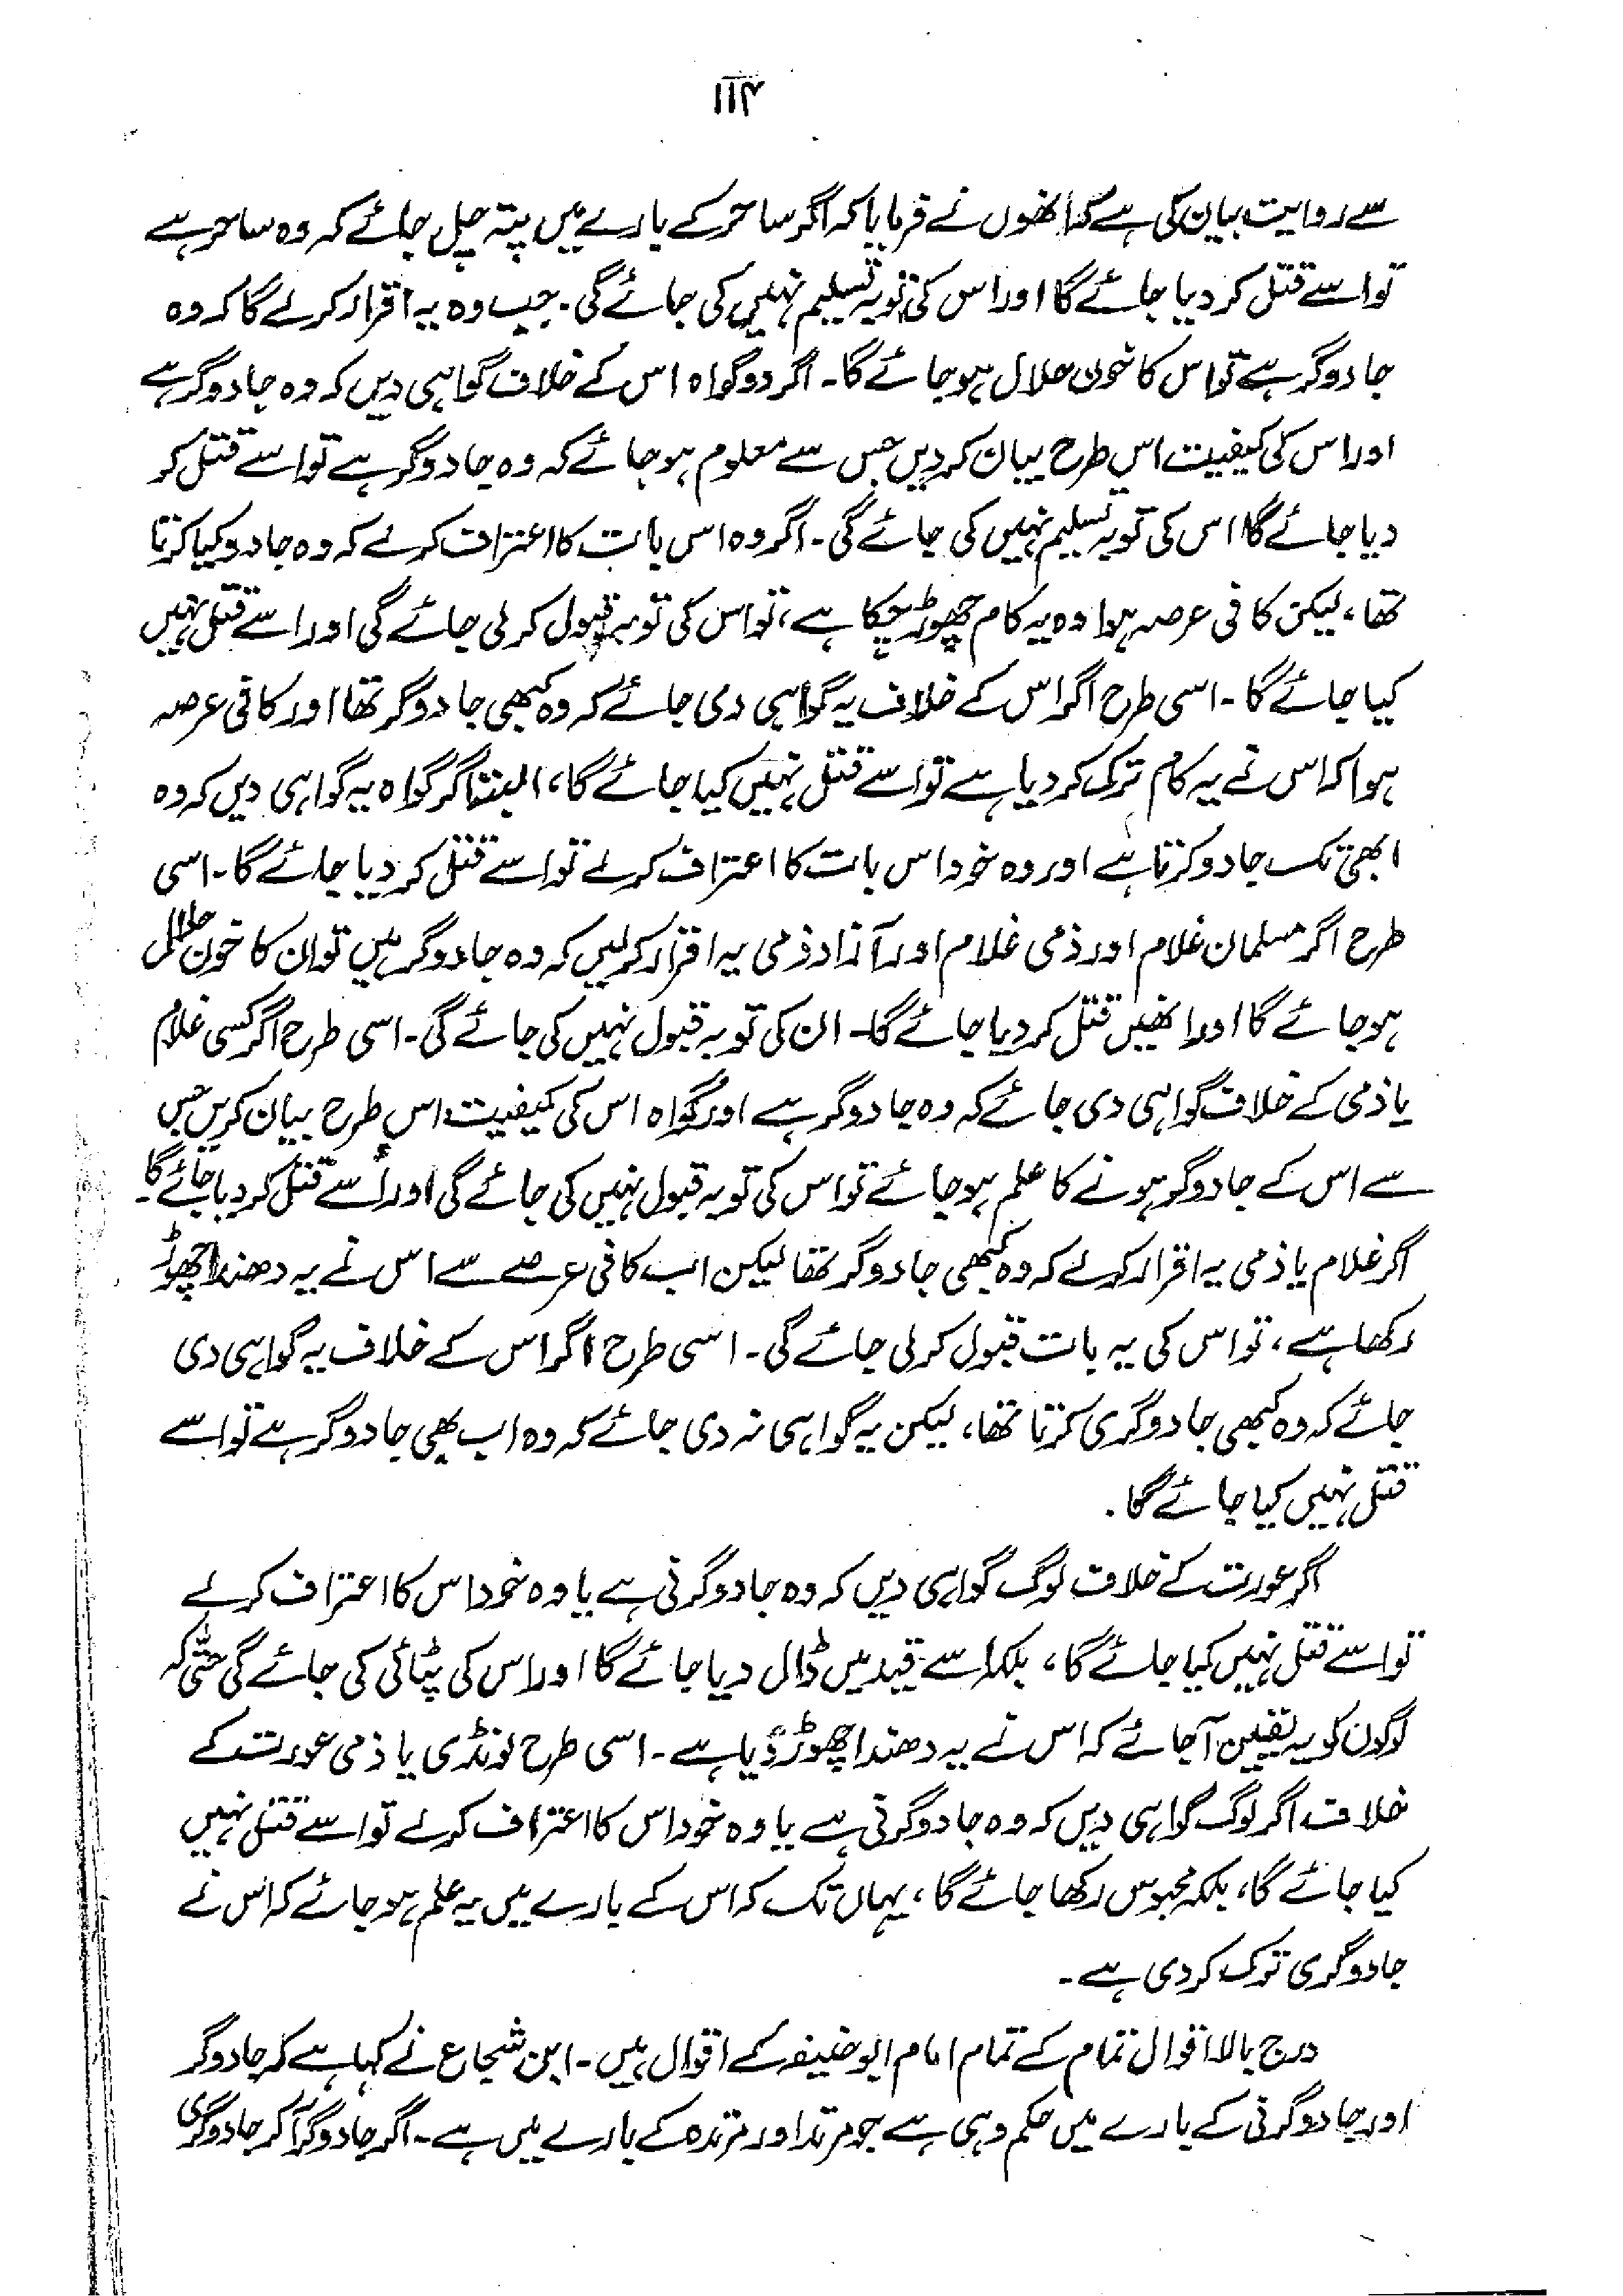 ۱۱۴
سے روایت بیان کی ہے کہ انھوں نے فرمایا کہ اگر ساحر کے بارے میں پتہ چل جائے کہ وہ ساحر ہے
تو اسے قتل کر دیا جائے گا اور اس کی توبہ تسلیم نہیں کی جائے گی۔ جب وہ یہ اقرار کرلے گا کہ وہ
جادوگر ہے تو اس کا خون حلال ہو جائے گا۔ اگر دو گواہ اس کے خلاف گواہی دیں کہ وہ جادوگر ہے
اور اس کی کیفیت اس طرح بیان کر دیں جس سے معلوم ہو جائے کہ وہ جادوگر ہے تو اسے قتل کر
دیا جائے گا اس کی توبہ تسلیم نہیں کی جائے گی۔ اگر وہ اس بات کا اعتراف کرلے کہ وہ جادو کیا کرتا
تھا، لیکن کافی عرصہ ہوا وہ یہ کام چھوڑ چکا ہے، تو اس کی توبہ قبول کر لی جائے گی اور اسے قتل نہیں
کیا جائے گا۔ اسی طرح اگر اس کے خلاف یہ گواہی دی جائے کہ وہ کبھی جادوگر تھا اور کافی عرصہ
ہوا کہ اس نے یہ کام ترک کر دیا ہے تو اسے قتل نہیں کیا جائے گا، البتہ اگر گواہ یہ گواہی دیں کہ وہ
ابھی تک جادو کرتا ہے اور وہ خود اس بات کا اعتراف کرلے تو اسے قتل کر دیا جائے گا۔ اسی
طرح اگر مسلمان غلام اور ذمی غلام اور آزاد ذمی یہ اقرار کرلیں کہ وہ جادوگر ہیں تو ان کا خون حلال
ہو جائے گا اور انھیں قتل کر دیا جائے گا۔ ان کی توبہ قبول نہیں کی جائے گی۔ اسی طرح اگر کسی غلام
یا ذمی کے خلاف گواہی دی جائے کہ وہ جادوگر ہے اور گواہ اس کی کیفیت اس طرح بیان کریں جس
سے اس کے جادوگر ہونے کا علم ہو جائے تو اس کی توبہ قبول نہیں کی جائے گی اور اُسے قتل کر دیا جائے گا۔
اگر غلام یا ذمی یہ اقرار کرلے کہ وہ کبھی جادوگر تھا لیکن اب کافی عرصے سے اس نے یہ دھندا چھوڑ
رکھا ہے، تو اس کی یہ بات قبول کر لی جائے گی۔ اسی طرح اگر اس کے خلاف یہ گواہی دی
جائے کہ وہ کبھی جادوگری کرتا تھا، لیکن یہ گواہی نہ دی جائے کہ وہ اب بھی جادوگر ہے تو اسے
قتل نہیں کیا جائے گا۔
اگر عورت کے خلاف لوگ گواہی دیں کہ وہ جادوگرنی ہے یا وہ خود اس کا اعتراف کرلے
تو اسے قتل نہیں کیا جائے گا، بلکہ اسے قید میں ڈال دیا جائے گا اور اس کی پٹائی کی جائے گی حتیٰ کہ
لوگوں کو یہ یقین آ جائے کہ اس نے یہ دھندا چھوڑ دیا ہے۔ اسی طرح لونڈی یا ذمی عورت کے
خلاف اگر لوگ گواہی دیں کہ وہ جادوگرنی ہے یا وہ خود اس کا اعتراف کرلے تو اسے قتل نہیں
کیا جائے گا، بلکہ محبوس رکھا جائے گا، یہاں تک کہ اس کے بارے میں یہ علم ہو جائے کہ اس نے
جادوگری ترک کردی ہے۔
درج بالا اقوال تمام کے تمام امام ابو حنیفہ کے اقوال ہیں۔ ابن شجاع نے کہا ہے کہ جادوگر
اور جادوگرنی کے بارے میں حکم وہی ہے جو مرتد اور مرتدہ کے بارے میں ہے۔ اگر جادوگر آ کر جادوگری